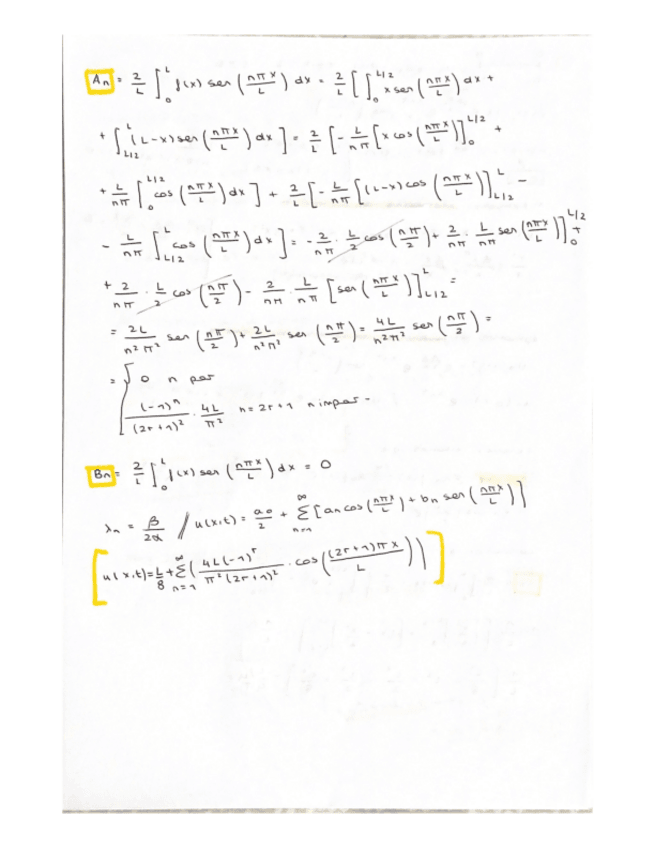 An = 2/L ∫₀ᴸ f(x) sen (nπx/L) dx = 2/L [ ∫₀^(L/2) x sen (nπx/L) dx +
+ ∫_(L/2)^L (L-x) sen (nπx/L) dx ] = 2/L [ - L/nπ [ x cos (nπx/L) ]₀^(L/2) +
+ L/nπ ∫₀^(L/2) cos (nπx/L) dx ] + 2/L [ - L/nπ [ (L-x) cos (nπx/L) ]_(L/2)^L -
- L/nπ ∫_(L/2)^L cos (nπx/L) dx ] = - 2/nπ · L/2 cos (nπ/2) + 2/nπ · L/nπ sen (nπx/L) ]₀^(L/2) +
+ 2/nπ · L/2 cos (nπ/2) - 2/nπ · L/nπ [ sen (nπx/L) ]_(L/2)^L =
= 2L/n²π² sen (nπ/2) + 2L/n²π² sen (nπ/2) = 4L/n²π² sen (nπ/2) =
= { 0 n par
(-1)ⁿ/(2r+1)² · 4L/π² n = 2r+1 n impar.
Bn = 2/L ∫₀ᴸ f(x) sen (nπx/L) dx = 0
λn = β/2α / u(x,t) = a₀/2 + Σ_(n=1)^∞ [ an cos (nπx/L) + bn sen (nπx/L) ]
[ u(x,t) = L/8 + Σ_(n=1)^∞ ( 4L(-1)^r/π²(2r+1)² · cos ((2r+1)πx/L) ) ]